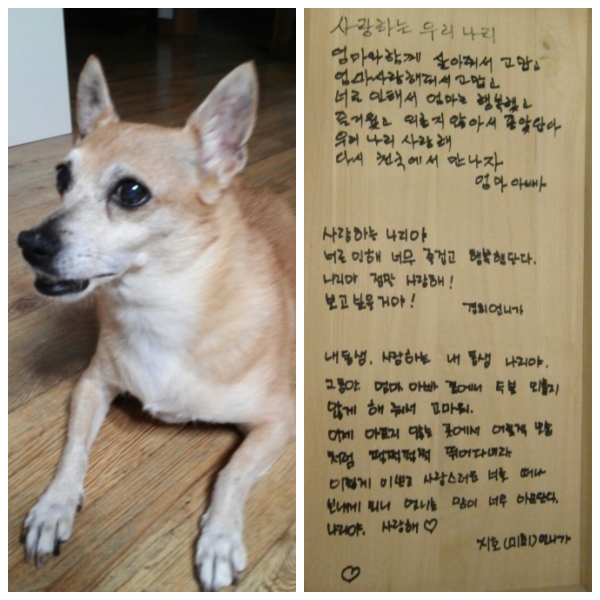 사랑하는 우리 나리
엄마와 함께 살아줘서 고맙고
엄마 사랑해줘서 고맙고
너로 인해서 엄마는 행복했고
즐거웠고 외롭지 않아서 좋았단다
우리 나리 사랑해
다시 천국에서 만나자
엄마 아빠
사랑하는 나리야
너로 인해 너무 즐겁고 행복했단다.
나리야 정말 사랑해!
보고싶을거야!
경희언니가
내동생, 사랑하는 내 동생 나리야.
그동안 엄마 아빠 곁에서 두분 외롭지
않게 해 줘서 고마워.
이제 아프지 않는 곳에서 어릴적 모습
처럼 펄쩍펄쩍 뛰어다녀라
이렇게 이쁘고 사랑스러운 너를 떠나
보내게 되니 언니는 맘이 너무 아프단다.
나리야. 사랑해♡
언니가
♡